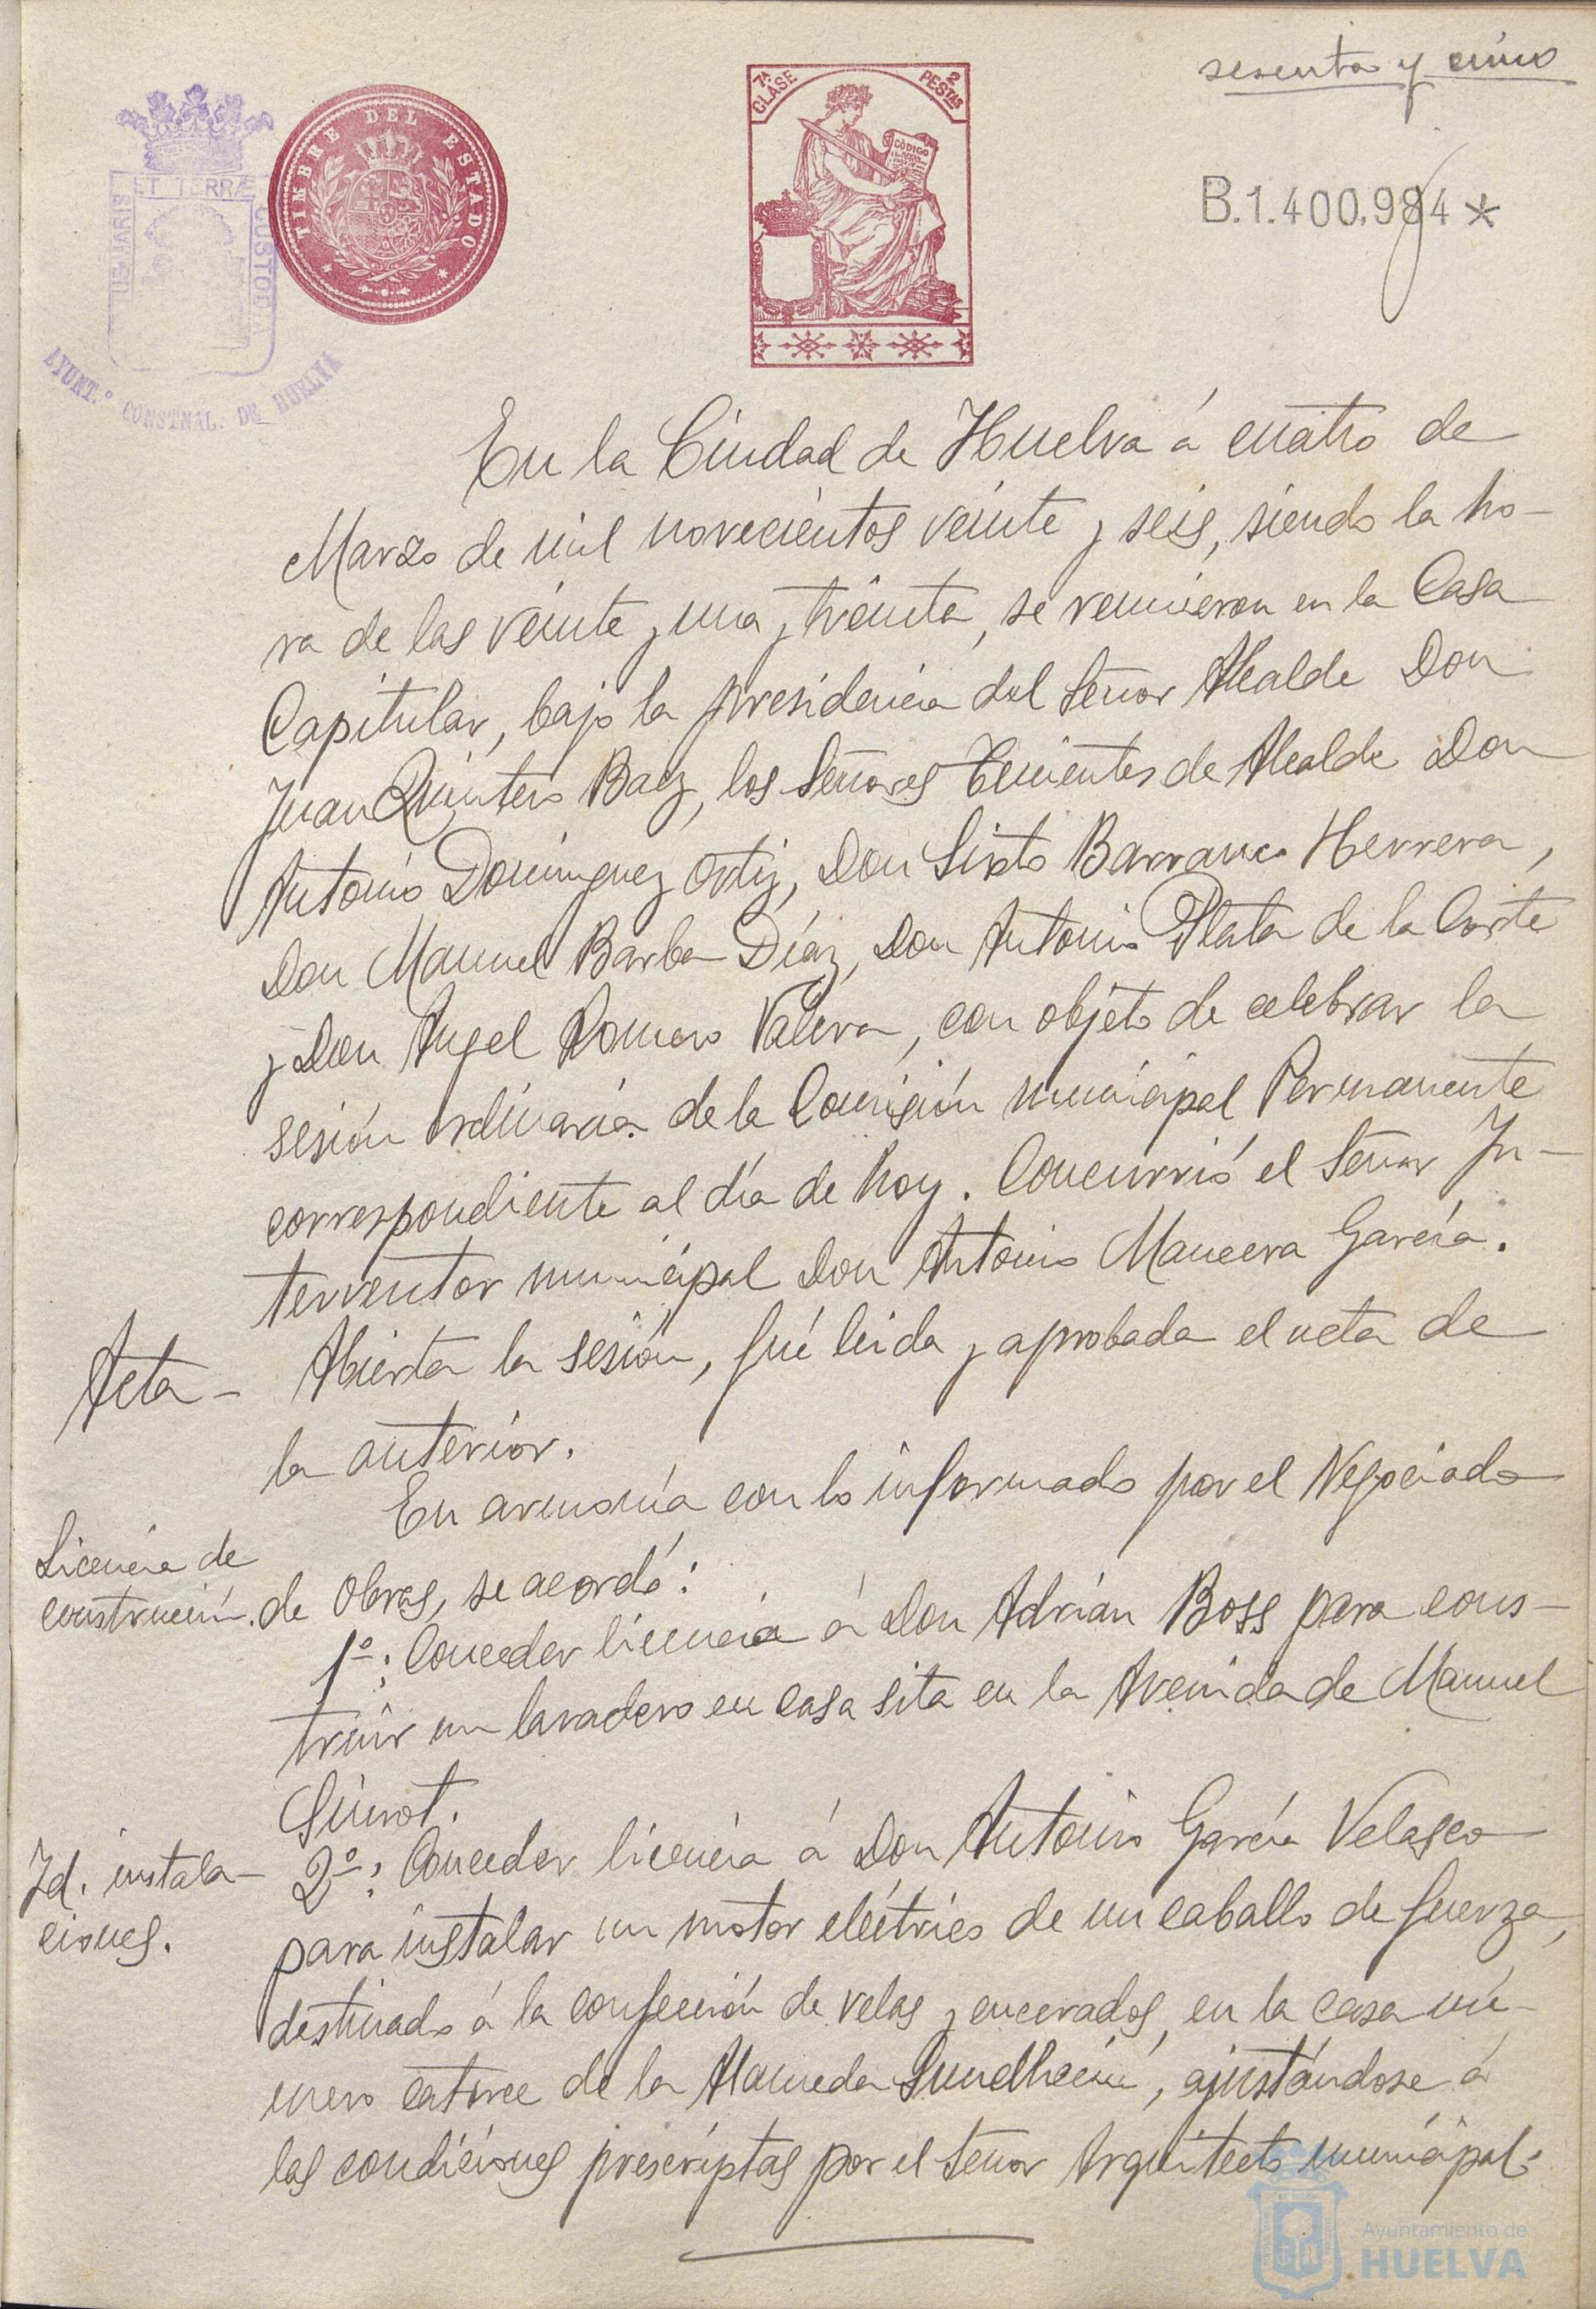 sesenta y cinco
7ª CLASE
2 PESTAS
CÓDIGO
TIMBRE DEL ESTADO
B.1.400.984*
ET TERRÆ
CUSTODIA
AYUNT.º CONSTNAL. DE HUELVA
En la Ciudad de Huelva á cuatro de
Marzo de mil novecientos veinte y seis, siendo la ho-
ra de las veinte y una y treinta, se reunieron en la Casa
Capitular, bajo la presidencia del Señor Alcalde Don
Juan Quintero Baez, los Señores Tenientes de Alcalde Don
Antonio Dominguez Ortiz, Don Sixto Barranco Herrera,
Don Manuel Barba Díaz, Don Antonio Plata de la Corte
y Don Angel Romero Valera, con objeto de celebrar la
sesión ordinaria de la Comisión municipal Permanente
correspondiente al día de hoy. Concurrió el Señor In-
terventor municipal Don Antonio Mancera García.
Acta- Abierta la sesión, fué leida y aprobada el acta de
la anterior.
En armonía con lo informado por el Negociado
Licencia de
construcción. de Obras, se acordó:
1º: Conceder licencia á Don Adrián Boss para cons-
truir un lavadero en casa sita en la Avenida de Manuel
Siurot.
Id. instala- 2º: Conceder licencia á Don Antonio García Velasco
ciones. para instalar un motor eléctrico de un caballo de fuerza,
destinado á la confección de velas y encerados, en la casa nú-
mero catorce de la Alameda Sundheim, ajustándose á
las condiciones prescriptas por el Señor Arquitecto municipal.
Ayuntamiento de
HUELVA